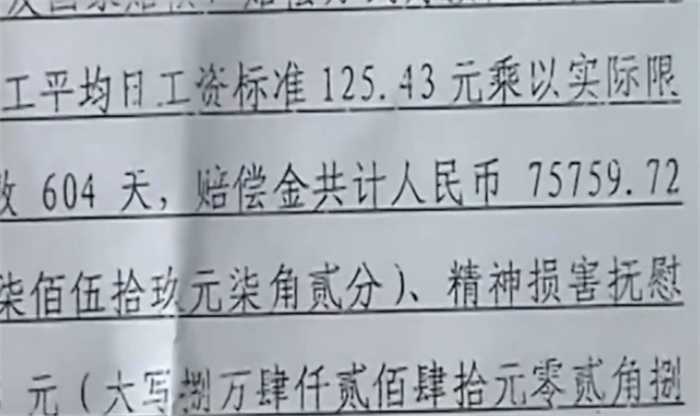 工平均日工资标准125.43元乘以实际限
数 604 天，赔偿金共计人民币 75759.72
柒佰伍拾玖元柒角贰分)、精神损害抚慰
元（大写捌万肆仟贰佰肆拾元零贰角捌